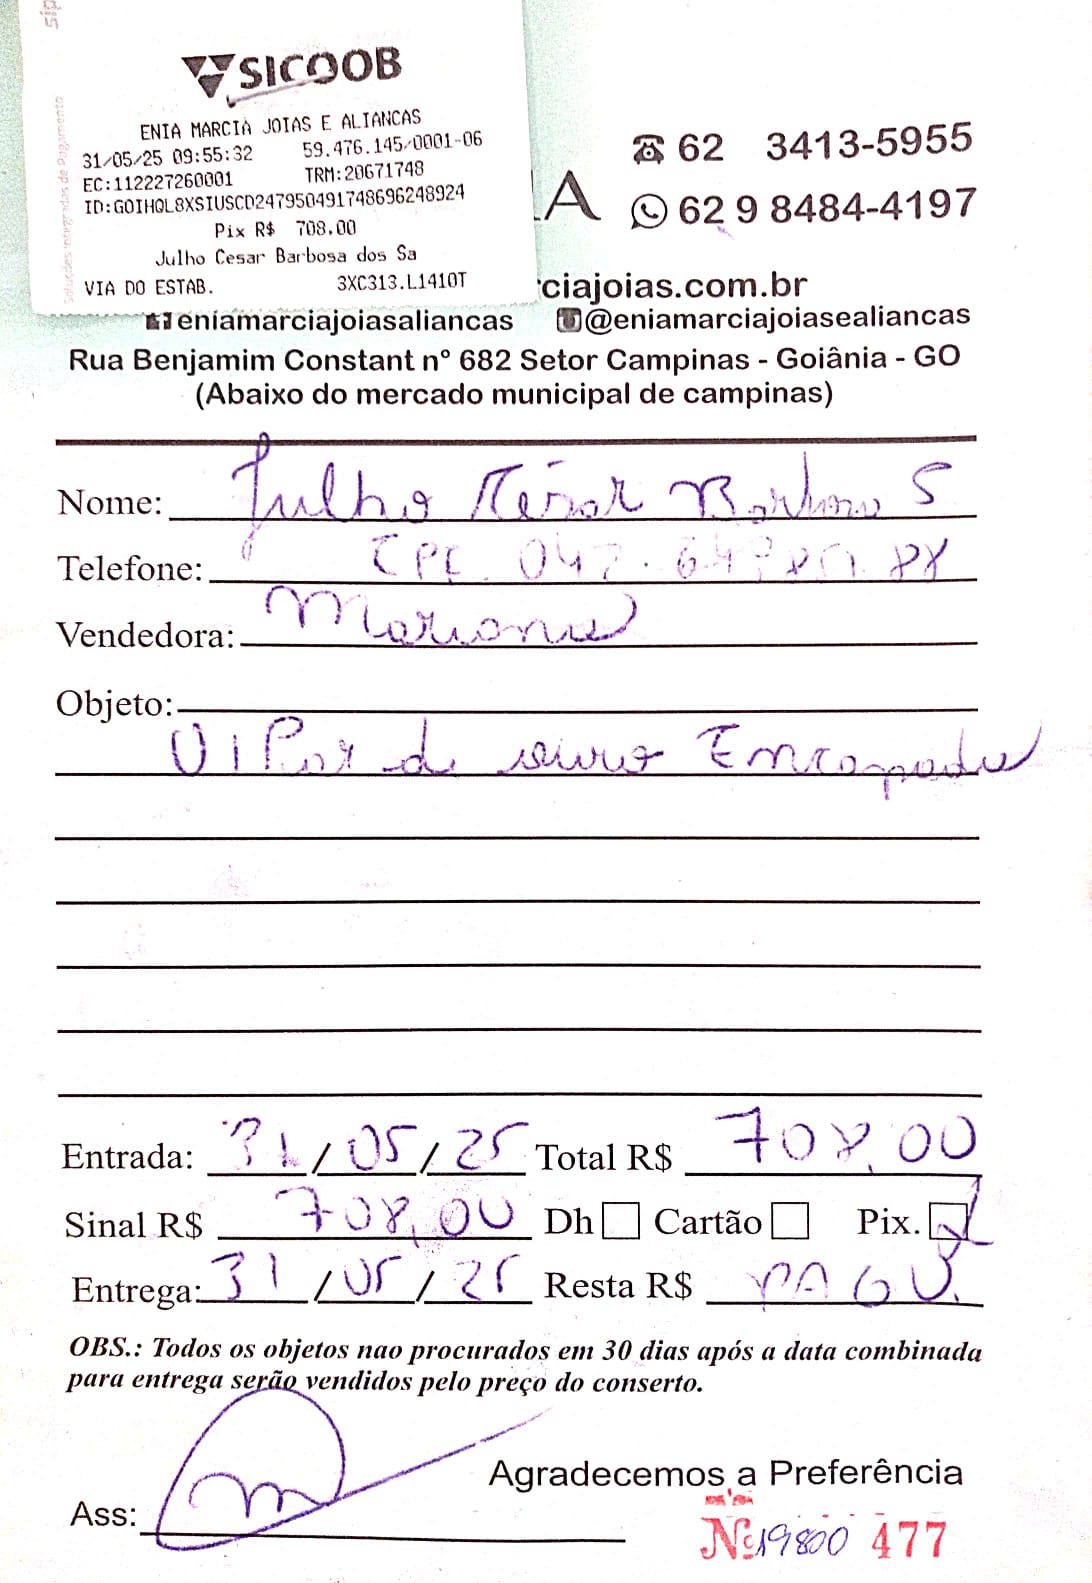 SICOOB
ENIA MARCIA JOIAS E ALIANCAS
31/05/25 09:55:32 59.476.145/0001-06
EC:112227260001 TRM:20671748
ID:GOIHQL8XSIUSCD247950491748696248924
Pix R$ 708.00
Julho Cesar Barbosa dos Sa
VIA DO ESTAB. 3XC313.L1410T
Soluções Integradas de Pagamento
62 3413-5955
A 62 9 8484-4197
ciajoias.com.br
eniamarciajoiasaliancas @eniamarciajoiasealiancas
Rua Benjamim Constant nº 682 Setor Campinas - Goiânia - GO
(Abaixo do mercado municipal de campinas)
Nome: Julho Cesar Barbosa S
Telefone: CPF 047.
Vendedora: Mariana
Objeto:
01 Par de
Entrada: 31/05/25 Total R$ 708,00
Sinal R$ 708,00 Dh Cartão Pix.
Entrega: 31/05/25 Resta R$ PAGO.
OBS.: Todos os objetos nao procurados em 30 dias após a data combinada
para entrega serão vendidos pelo preço do conserto.
Agradecemos a Preferência
Ass:
Nº 19800 477